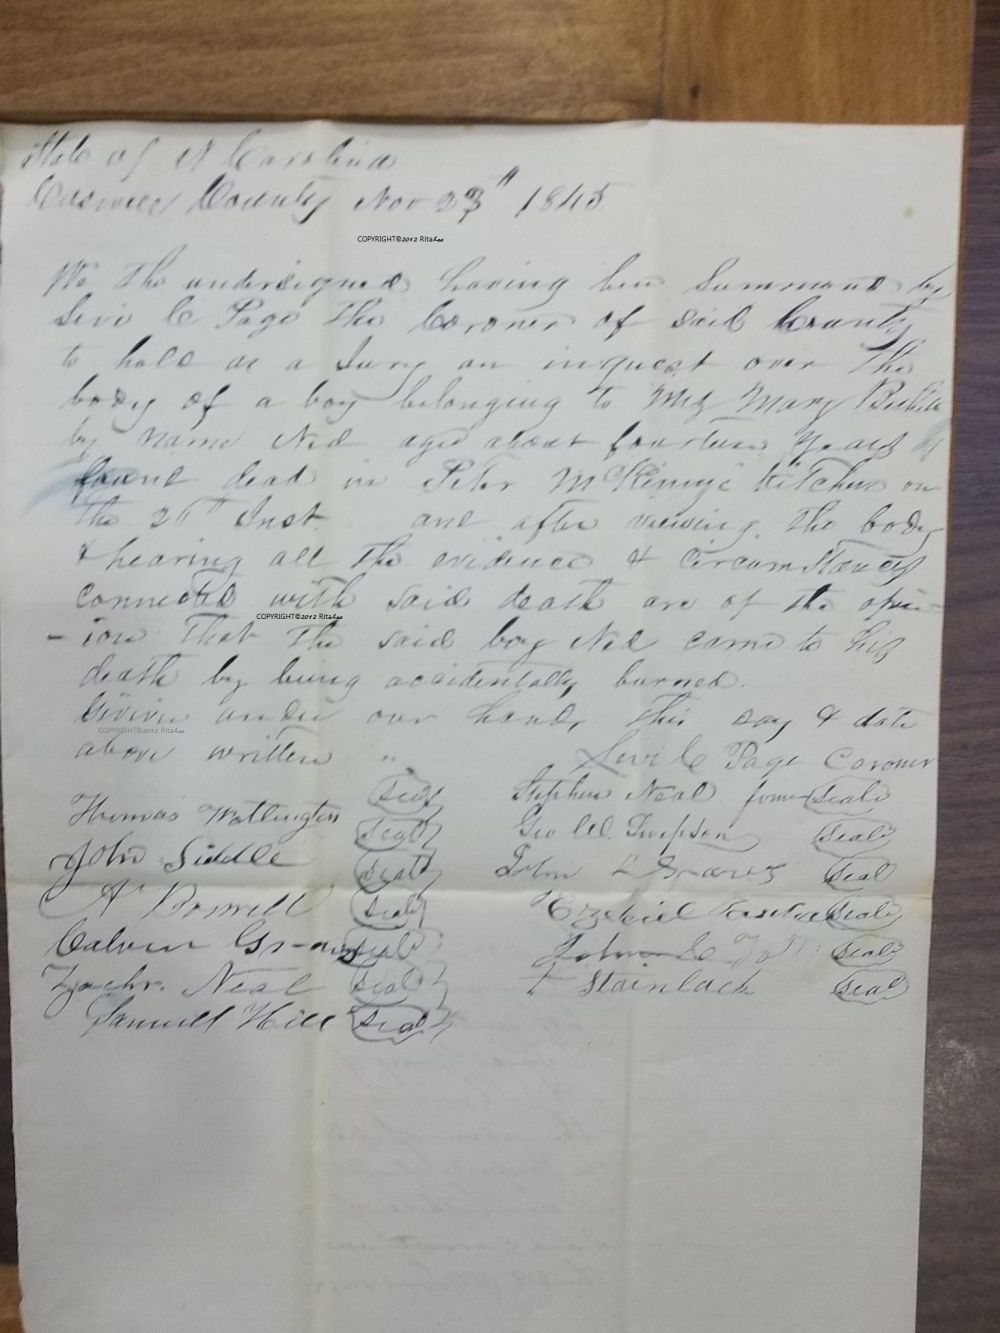 State of N Carolina
Caswell County Nov 23" 1845
COPYRIGHT©2012 RitaLea
We the undersigned having ben Summond by
Levi C Page the Coroner of said County
to hold as a Jury an inquest over the
body of a boy belonging to Mrs Mary
by name Ned aged about fourteen years
found dead in Peter Kitchen on
the Inst. and after viewing the body
& hearing all the evidence & circumstances
connected with said death are of the opin-
COPYRIGHT©2012 RitaLea
-ion that the said boy Ned came to his
death by being accidentally burned.
Givin under our hands this day & date
COPYRIGHT©2012 RitaLea
above written " Levi C Page Coroner
Thomas Watlington Seal Stephen Neal Seal
John Siddle Seal Geo W. Swepson Seal
A Boswell Seal John L Graves Seal
Calvin Graves Seal Ezekiel Seal
Zachr. Neal Seal John C Seal
Samuell Hill Seal Stainback Seal